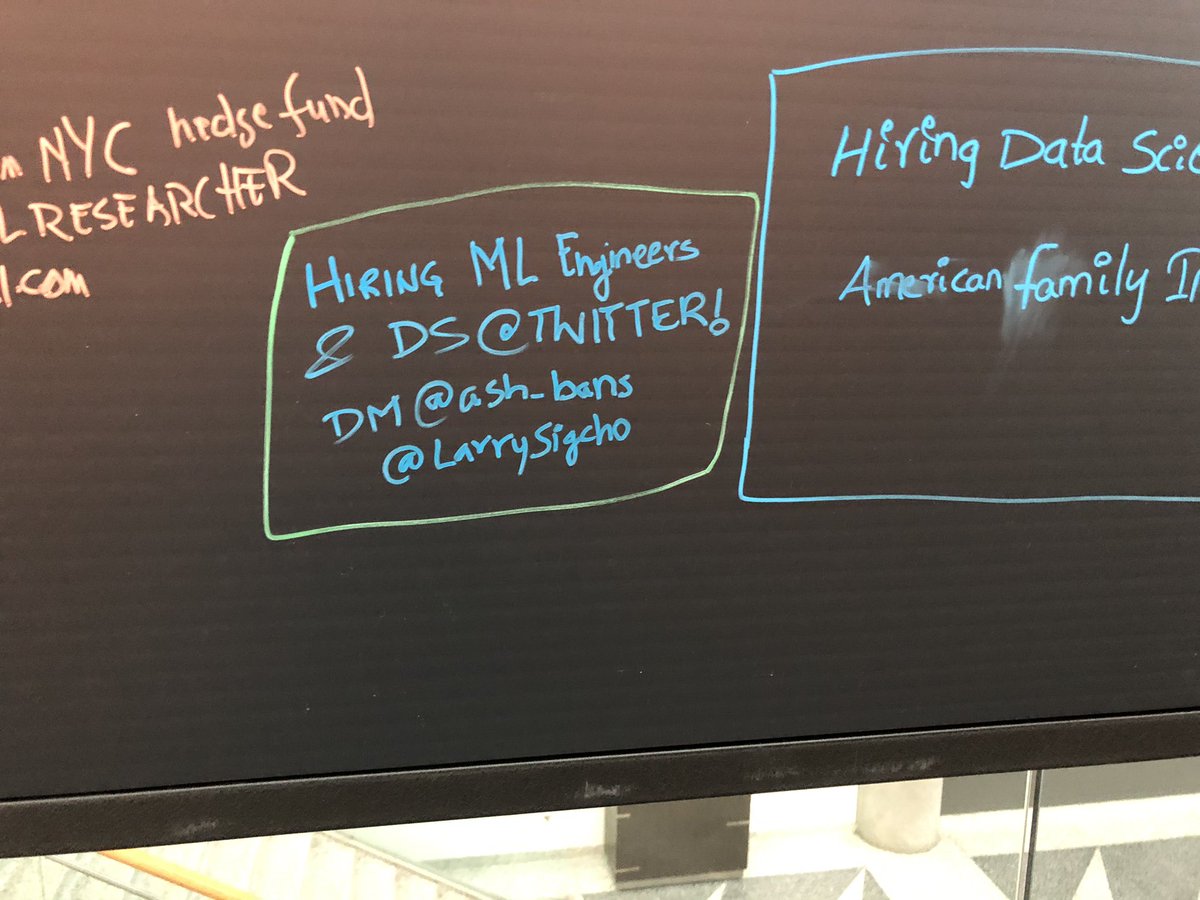 NYC hedge fund
RESEARCHER
.com
HIRING ML Engineers
& DS @TWITTER!
DM @ash_bans
@LarrySigcho
Hiring Data Scie
American family I